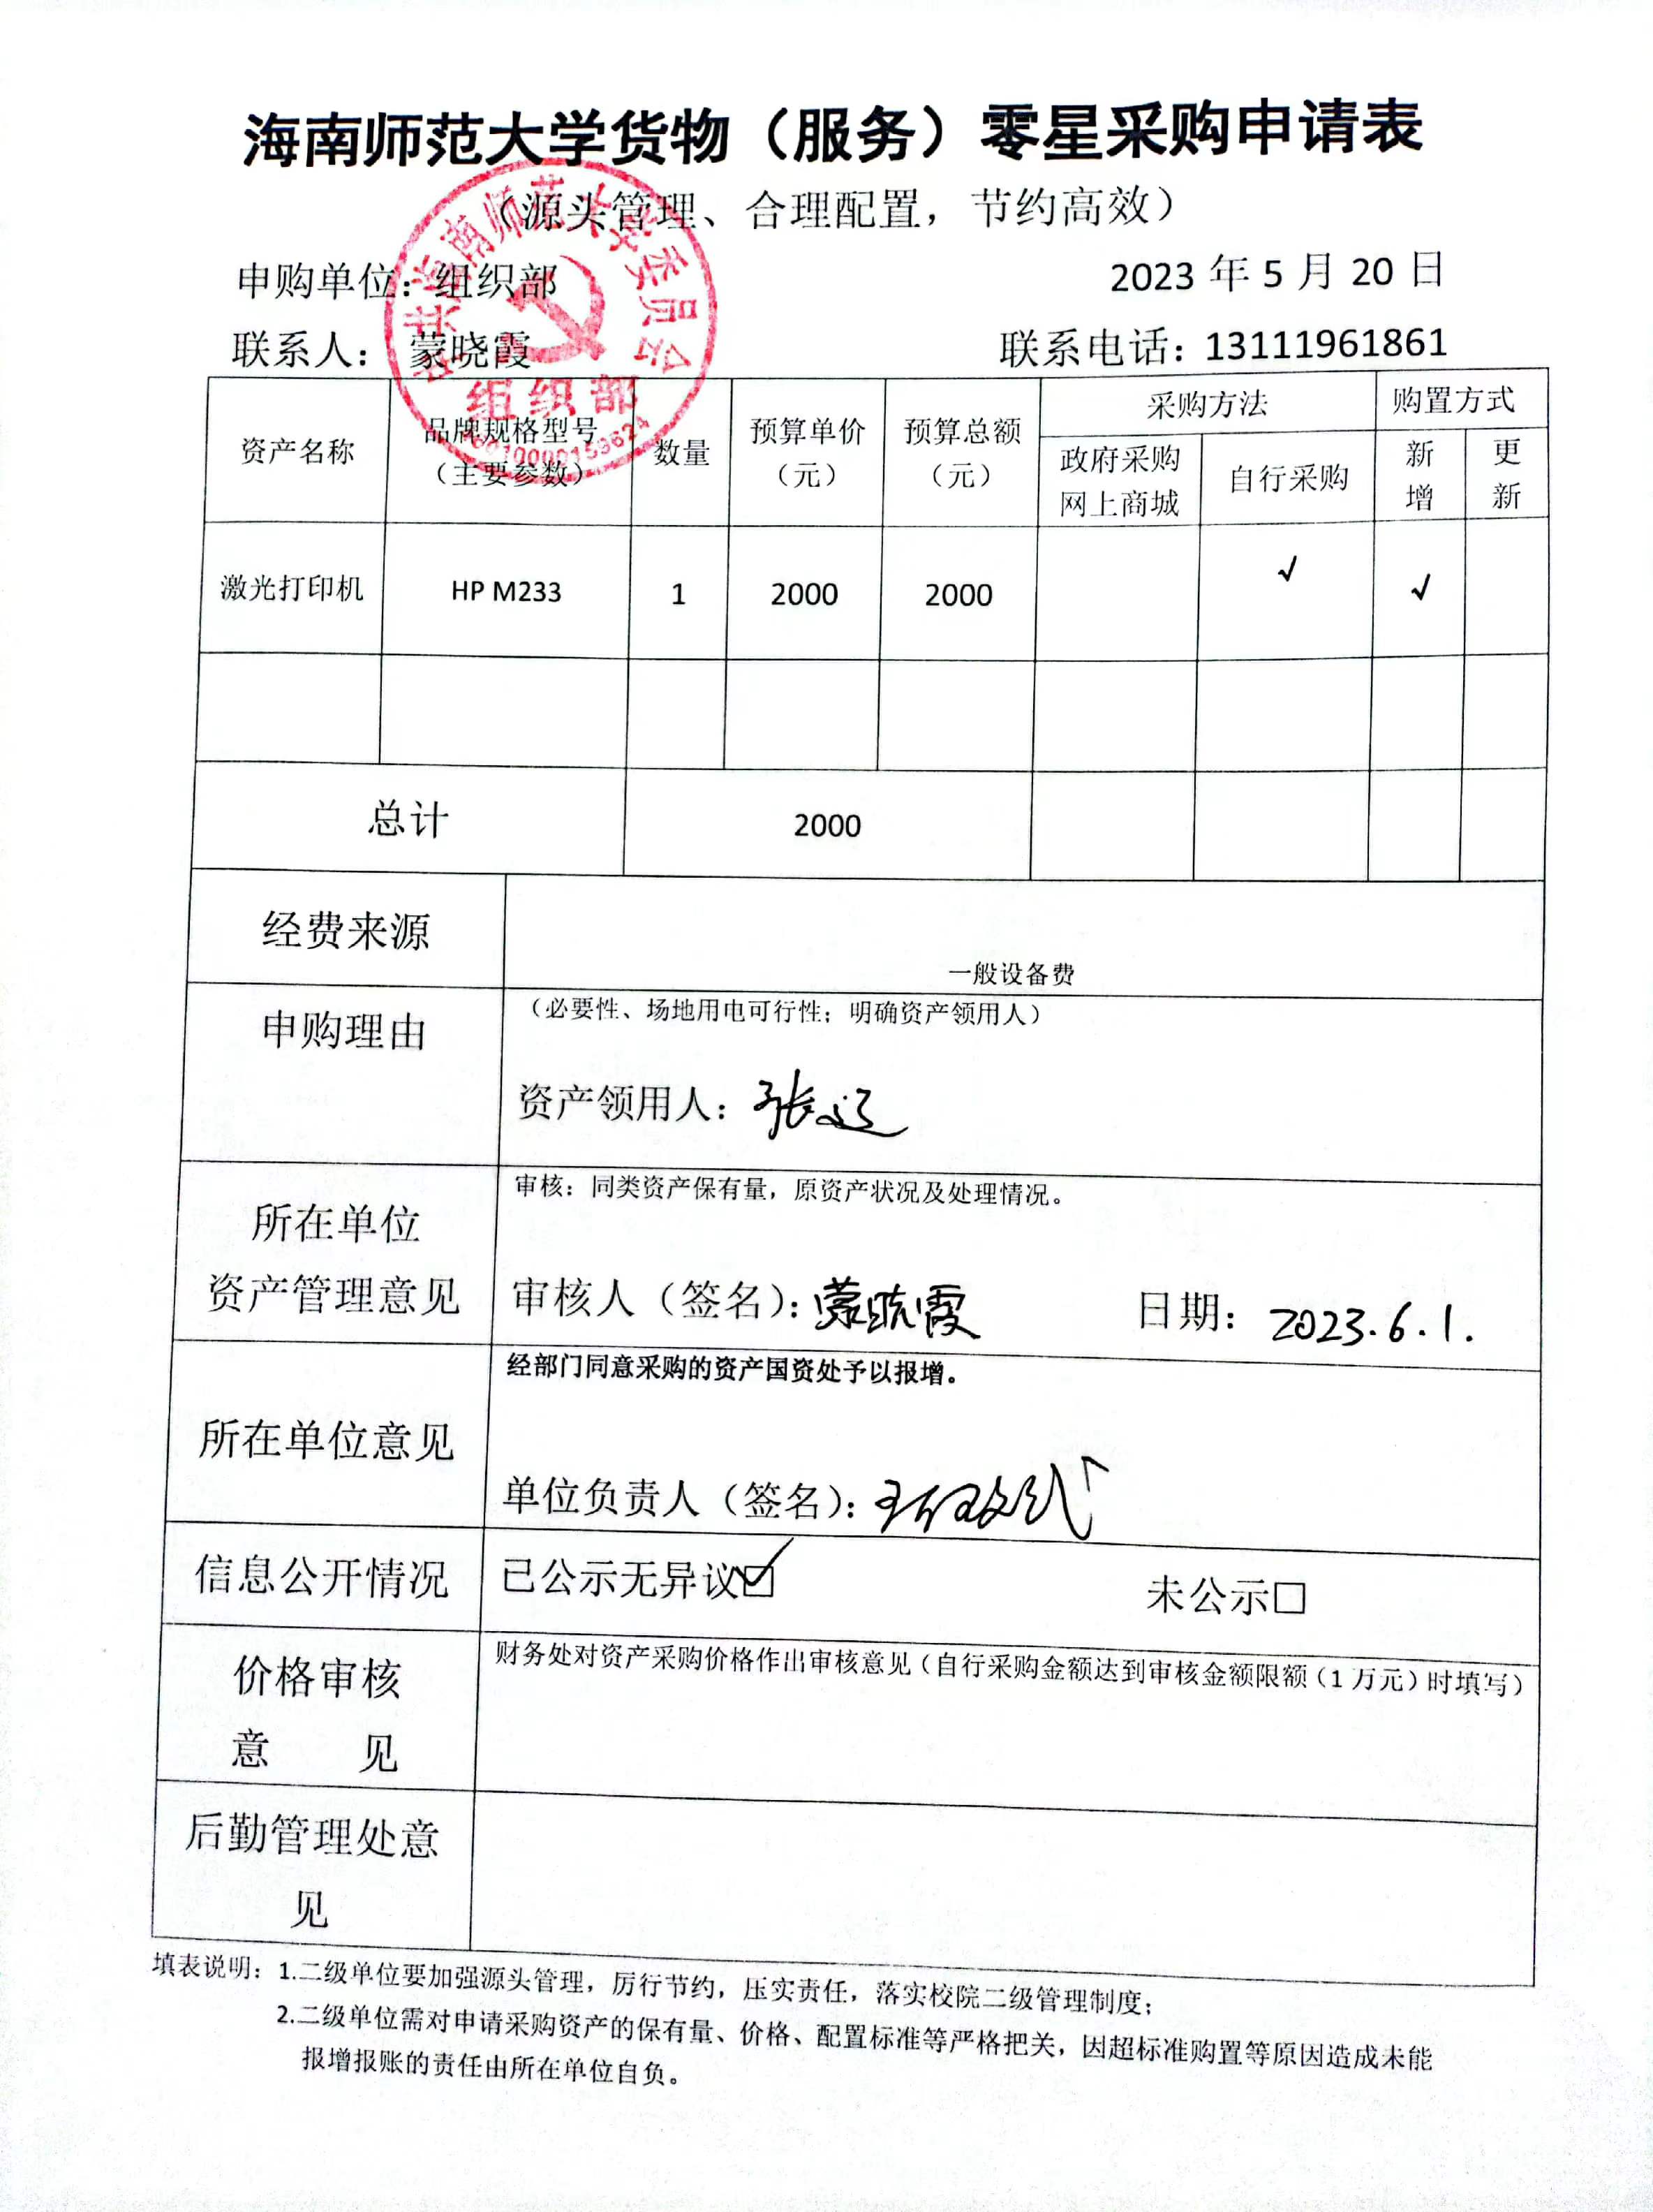 海南师范大学货物（服务）零星采购申请表
（源头管理、合理配置，节约高效）
申购单位：组织部 2023 年 5 月 20 日
联系人： 蒙晓霞 联系电话：13111961861
中共海南师范大学委员会
组织部
资产名称 品牌规格型号（主要参数） 数量 预算单价（元） 预算总额（元） 采购方法 购置方式
政府采购网上商城 自行采购 新增 更新
激光打印机 HP M233 1 2000 2000 √ √
总计 2000
经费来源 一般设备费
申购理由 （必要性、场地用电可行性；明确资产领用人）
资产领用人：张
所在单位
资产管理意见
审核：同类资产保有量，原资产状况及处理情况。
审核人（签名）：蒙晓霞 日期：2023.6.1.
所在单位意见
经部门同意采购的资产国资处予以报增。
单位负责人（签名）：
信息公开情况 已公示无异议☑ 未公示□
价格审核
意 见
财务处对资产采购价格作出审核意见（自行采购金额达到审核金额限额（1 万元）时填写）
后勤管理处意
见
填表说明：1.二级单位要加强源头管理，厉行节约，压实责任，落实校院二级管理制度；
2.二级单位需对申请采购资产的保有量、价格、配置标准等严格把关，因超标准购置等原因造成未能
报增报账的责任由所在单位自负。